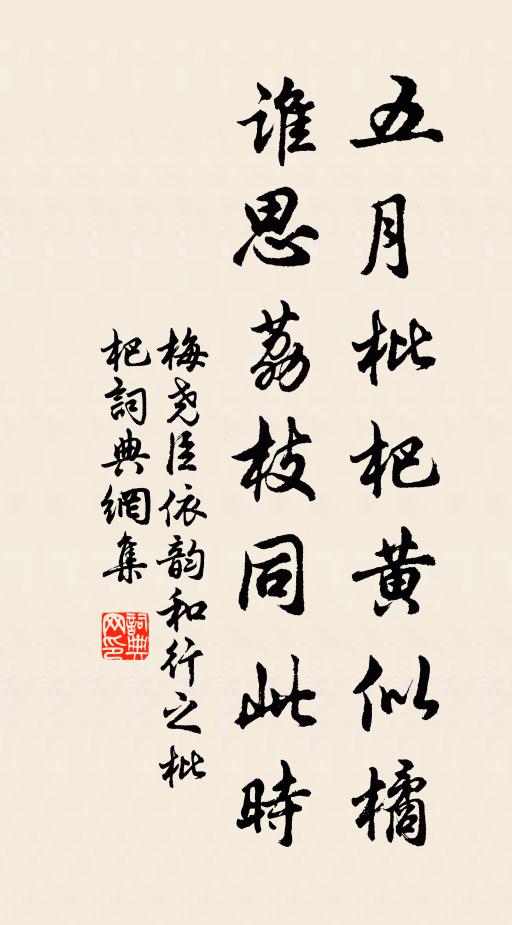 五月枇杷黄似橘
谁思荔枝同此時
梅尧臣依韵和行之枇
杷詞典網集
詞典
网印